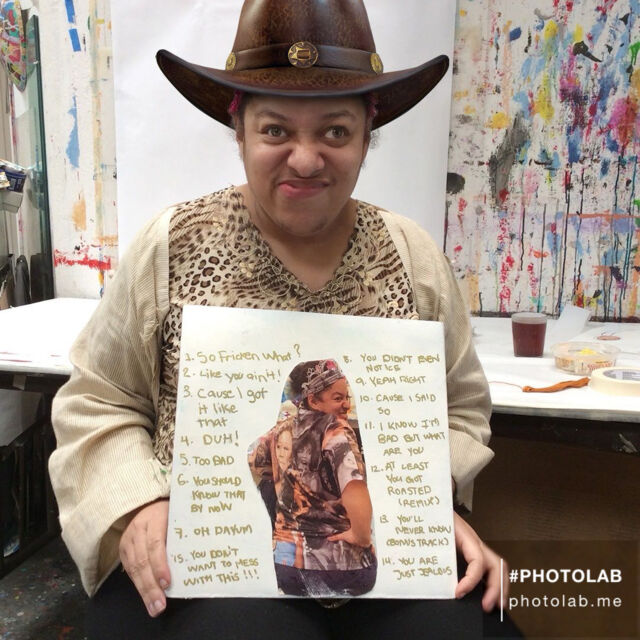 1. So Fricken What?
2. Like you ain't!
3. Cause I got
it like
that
4. DUH!
5. TOO BAD
6. YOU SHOULD
KNOW THAT
BY NOW
7. OH DAYUM
15. YOU DON'T
WANT TO MESS
WITH THIS!!!
8. YOU DIDN'T EVEN
NOTICE
9. YEAH RIGHT
10. CAUSE I SAID
SO
11. I KNOW I'M
BAD BUT WHAT
ARE YOU
12. AT LEAST
YOU GOT
ROASTED
(REMIX)
13. YOU'LL
NEVER KNOW
(BONUS TRACK)
14. YOU ARE
JUST JEALOUS
#PHOTOLAB
photolab.me